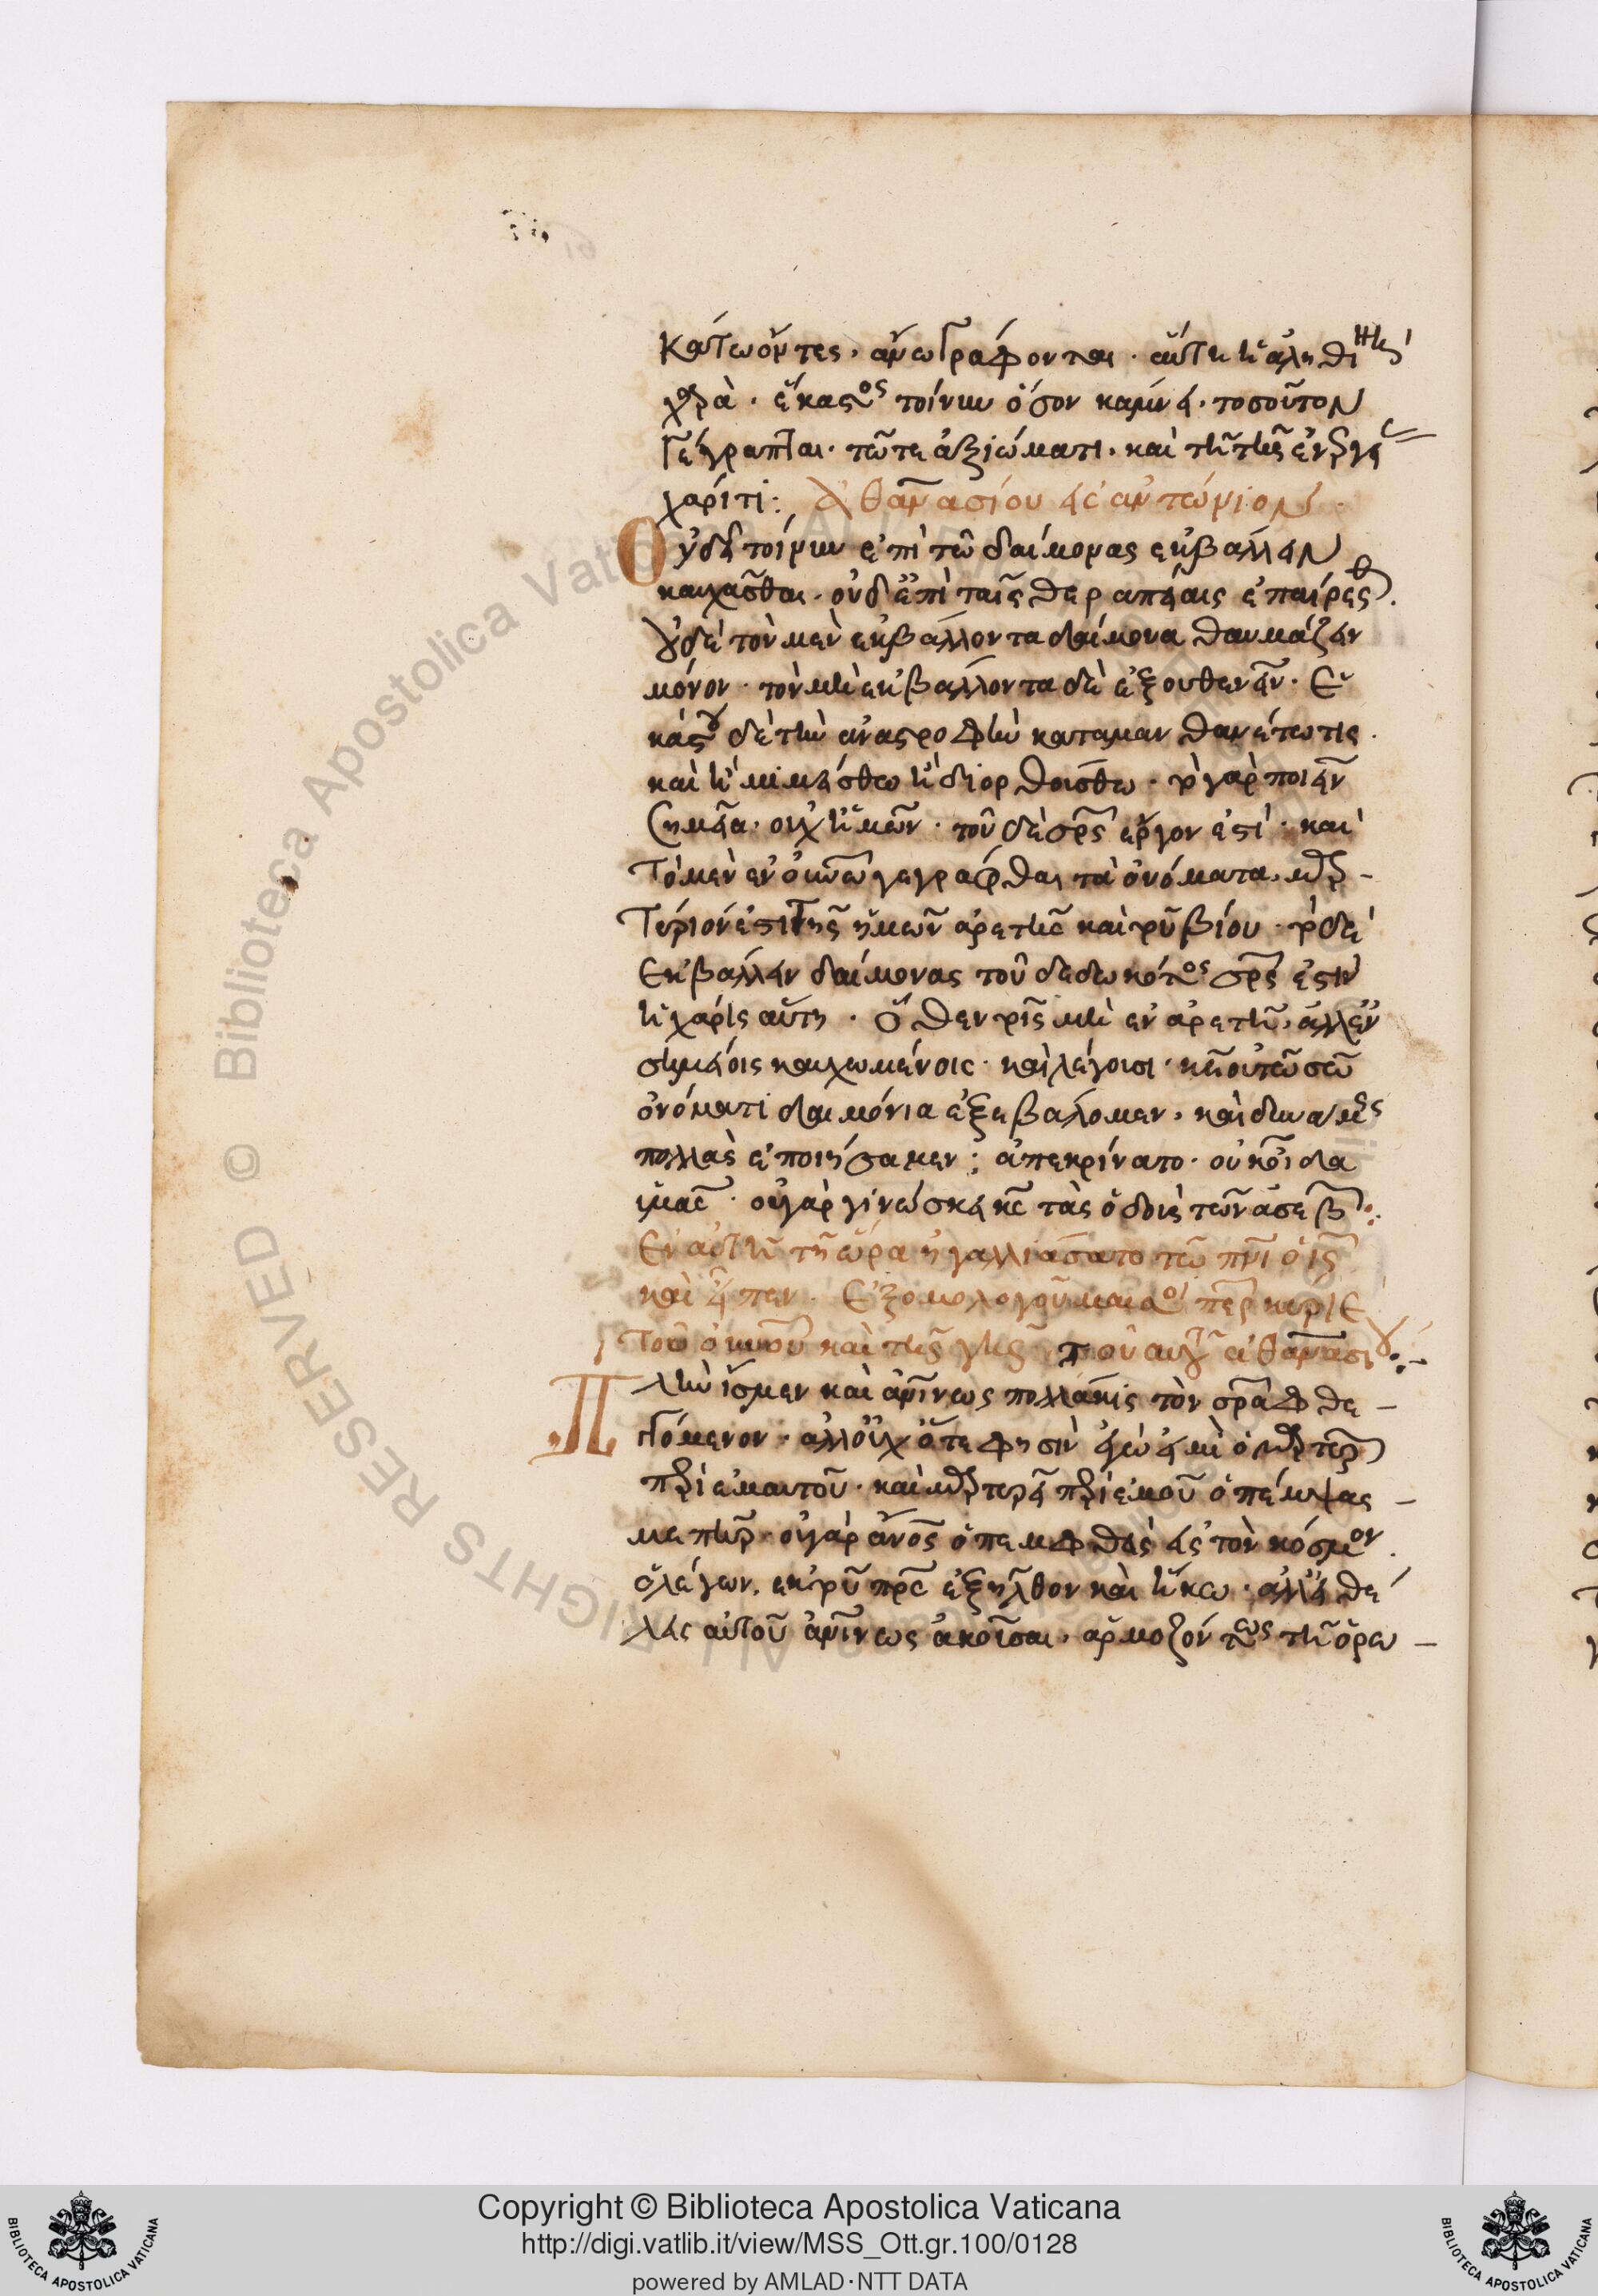 κάτω ὄντες· ἄνω γράφονται· αὕτη ἡ ἀληθὴς
χαρὰ· ἕκαστος τοίνυν ὅσον κάμνει· τοσοῦτον
γέγραπται· τῶ τε ἀξιώματι· καὶ τῆ τῆς ἐνεργεί
χάριτι: Ἀθανασίου εἰς ἀντώνιον
Οὐ δεῖ τοίνυν ἐπὶ τῶ δαίμονας ἐκβάλλειν
καυχᾶσθαι· οὐδ ἐπὶ ταῖς θεραπείαις ἐπαίρεσθ.
οὐδὲ τὸν μὲν ἐκβάλλοντα δαίμονα θαυμάζειν
μόνον· τὸν μὴ ἐκβάλλοντα δὲ ἐξουθενεῖν· ἑ
κάστου δὲ τὴν ἀναστροφὴν καταμανθανέτω τις·
καὶ ἢ μιμείσθω ἢ διορθούσθω· τὸ γὰρ ποιεῖν
σημεῖα· οὐχ ἡμῶν· τοῦ δὲ σρς ἔργον ἐστί· καὶ
τὸ μὲν ἐν οὐνῶ γεγράφθαι τὰ ὀνόματα· μαρ-
τύριόν ἐστι τῆς ἡμῶν ἀρετῆς καὶ τοῦ βίου· τὸ δὲ
ἐκβάλλειν δαίμονας τοῦ δεδωκότος σρς ἐστὶν
ἡ χάρις αὕτη· ὅθεν τοῖς μὴ ἐν ἀρετῆ· ἀλλ ἐν
σημείοις καυχωμένοις· καὶ λέγουσι· κε οὐ τῶ σῶ
ὀνόματι δαιμόνια ἐξεβάλομεν· καὶ δυνάμεις
πολλὰς ἐποιήσαμεν; ἀπεκρίνατο· οὐκ οἶδα
ὑμᾶς· οὐ γὰρ γινώσκει κς τὰς ὁδοὺς τῶν ἀσεβ:.
Ἐν αὐτῆ τῆ ὥρα ἠγαλλιάσατο τῶ πνι ὁ ις
καὶ εἶπεν· Ἐξομολογοῦμαί σοι περ κύριε
τοῦ οὐνοῦ καὶ τῆς γῆς τοῦ αγ ἀθανασίου:-
Πλὴν ἴσμεν καὶ ἀνινως πολλάκις τὸν σρα φθε-
γγόμενον· ἀλλ οὐχ ὅτε φησὶν ἐγώ εἰμι ὁ μαρτυρῶν
περὶ ἐμαυτοῦ· καὶ μαρτυρεῖ περὶ ἐμοῦ ὁ πέμψας-
με πηρ· οὐ γὰρ ανος ὁ πεμφθεὶς εἰς τὸν κόσμον·
ὁ λέγων· ἐκ τοῦ πρς ἐξῆλθον καὶ ἥκω· ἀλλ εἰ θέ
λεις αὐτοῦ ἀνινως ἀκοῦσαι· ἁρμοζόντως τῆ ὁρω-
Copyright © Biblioteca Apostolica Vaticana
http://digi.vatlib.it/view/MSS_Ott.gr.100/0128
powered by AMLAD·NTT DATA